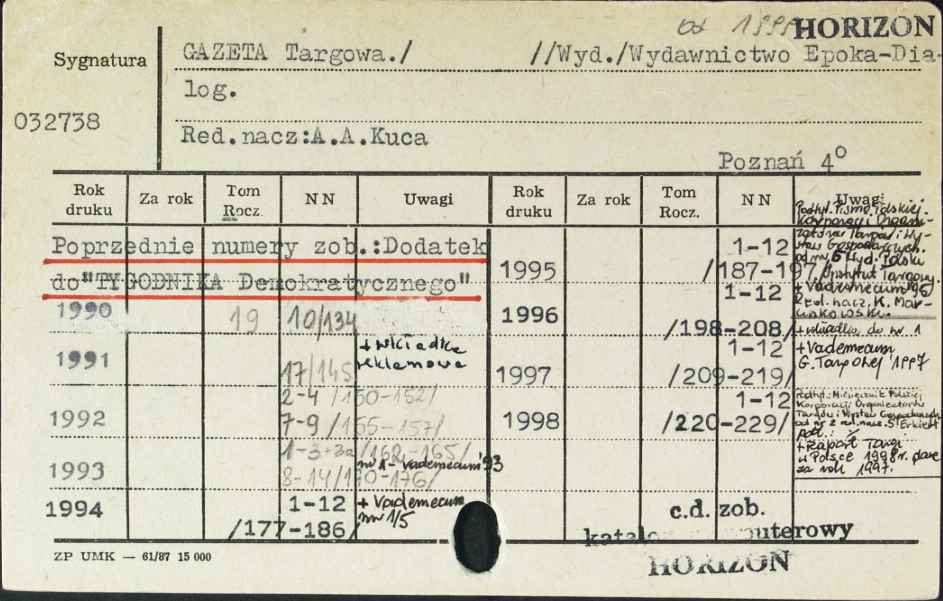 od 199 HORIZON
Sygnatura
GAZETA Targowa./ //Wyd./Wydawnictwo Epoka-Dia-
log.
032738
Red.nacz:A.A.Kuca
Poznań 4°
Rok druku Za rok Tom Rocz. NN Uwagi Rok druku Za rok Tom Rocz. NN Uwagi
Poprzednie numery zob.:Dodatek
do"TYGODNIKA Demokratycznego"
1990 19 10/134
1991 17/145 + wkładka reklamowa
1992 2-4 /150-152/
7-9 /155-157/
1993 1-3-3a/162-165/ nr 1- vademecum '93
8-14/170-176/
1994 1-12 /177-186/ + Vademecum nr 1/5
1995 1-12 /187-197/
Podtyt. Pismo Polskiej Korporacji Organizatorów Targów i Wystaw Gospodarczych. od nr 6 Wyd. Polski Instytut Targowy
1996 1-12 /198-208/
+ Vademecum '96
Red. nacz. K.
+ wkładka do nr 1
1997 1-12 /209-219/
+ Vademecum G. Targowej 1997
1998 1-12 /220-229/
Podtyt.: Miesięcznik Polskiej Korporacji Organizatorów Targów i Wystaw Gospodarczych od nr 2 red. nacz. S.
+ Raport Targi w Polsce 1998 r. dane za rok 1997.
c.d. zob.
komputerowy
HORIZON
ZP UMK — 61/87 15 000